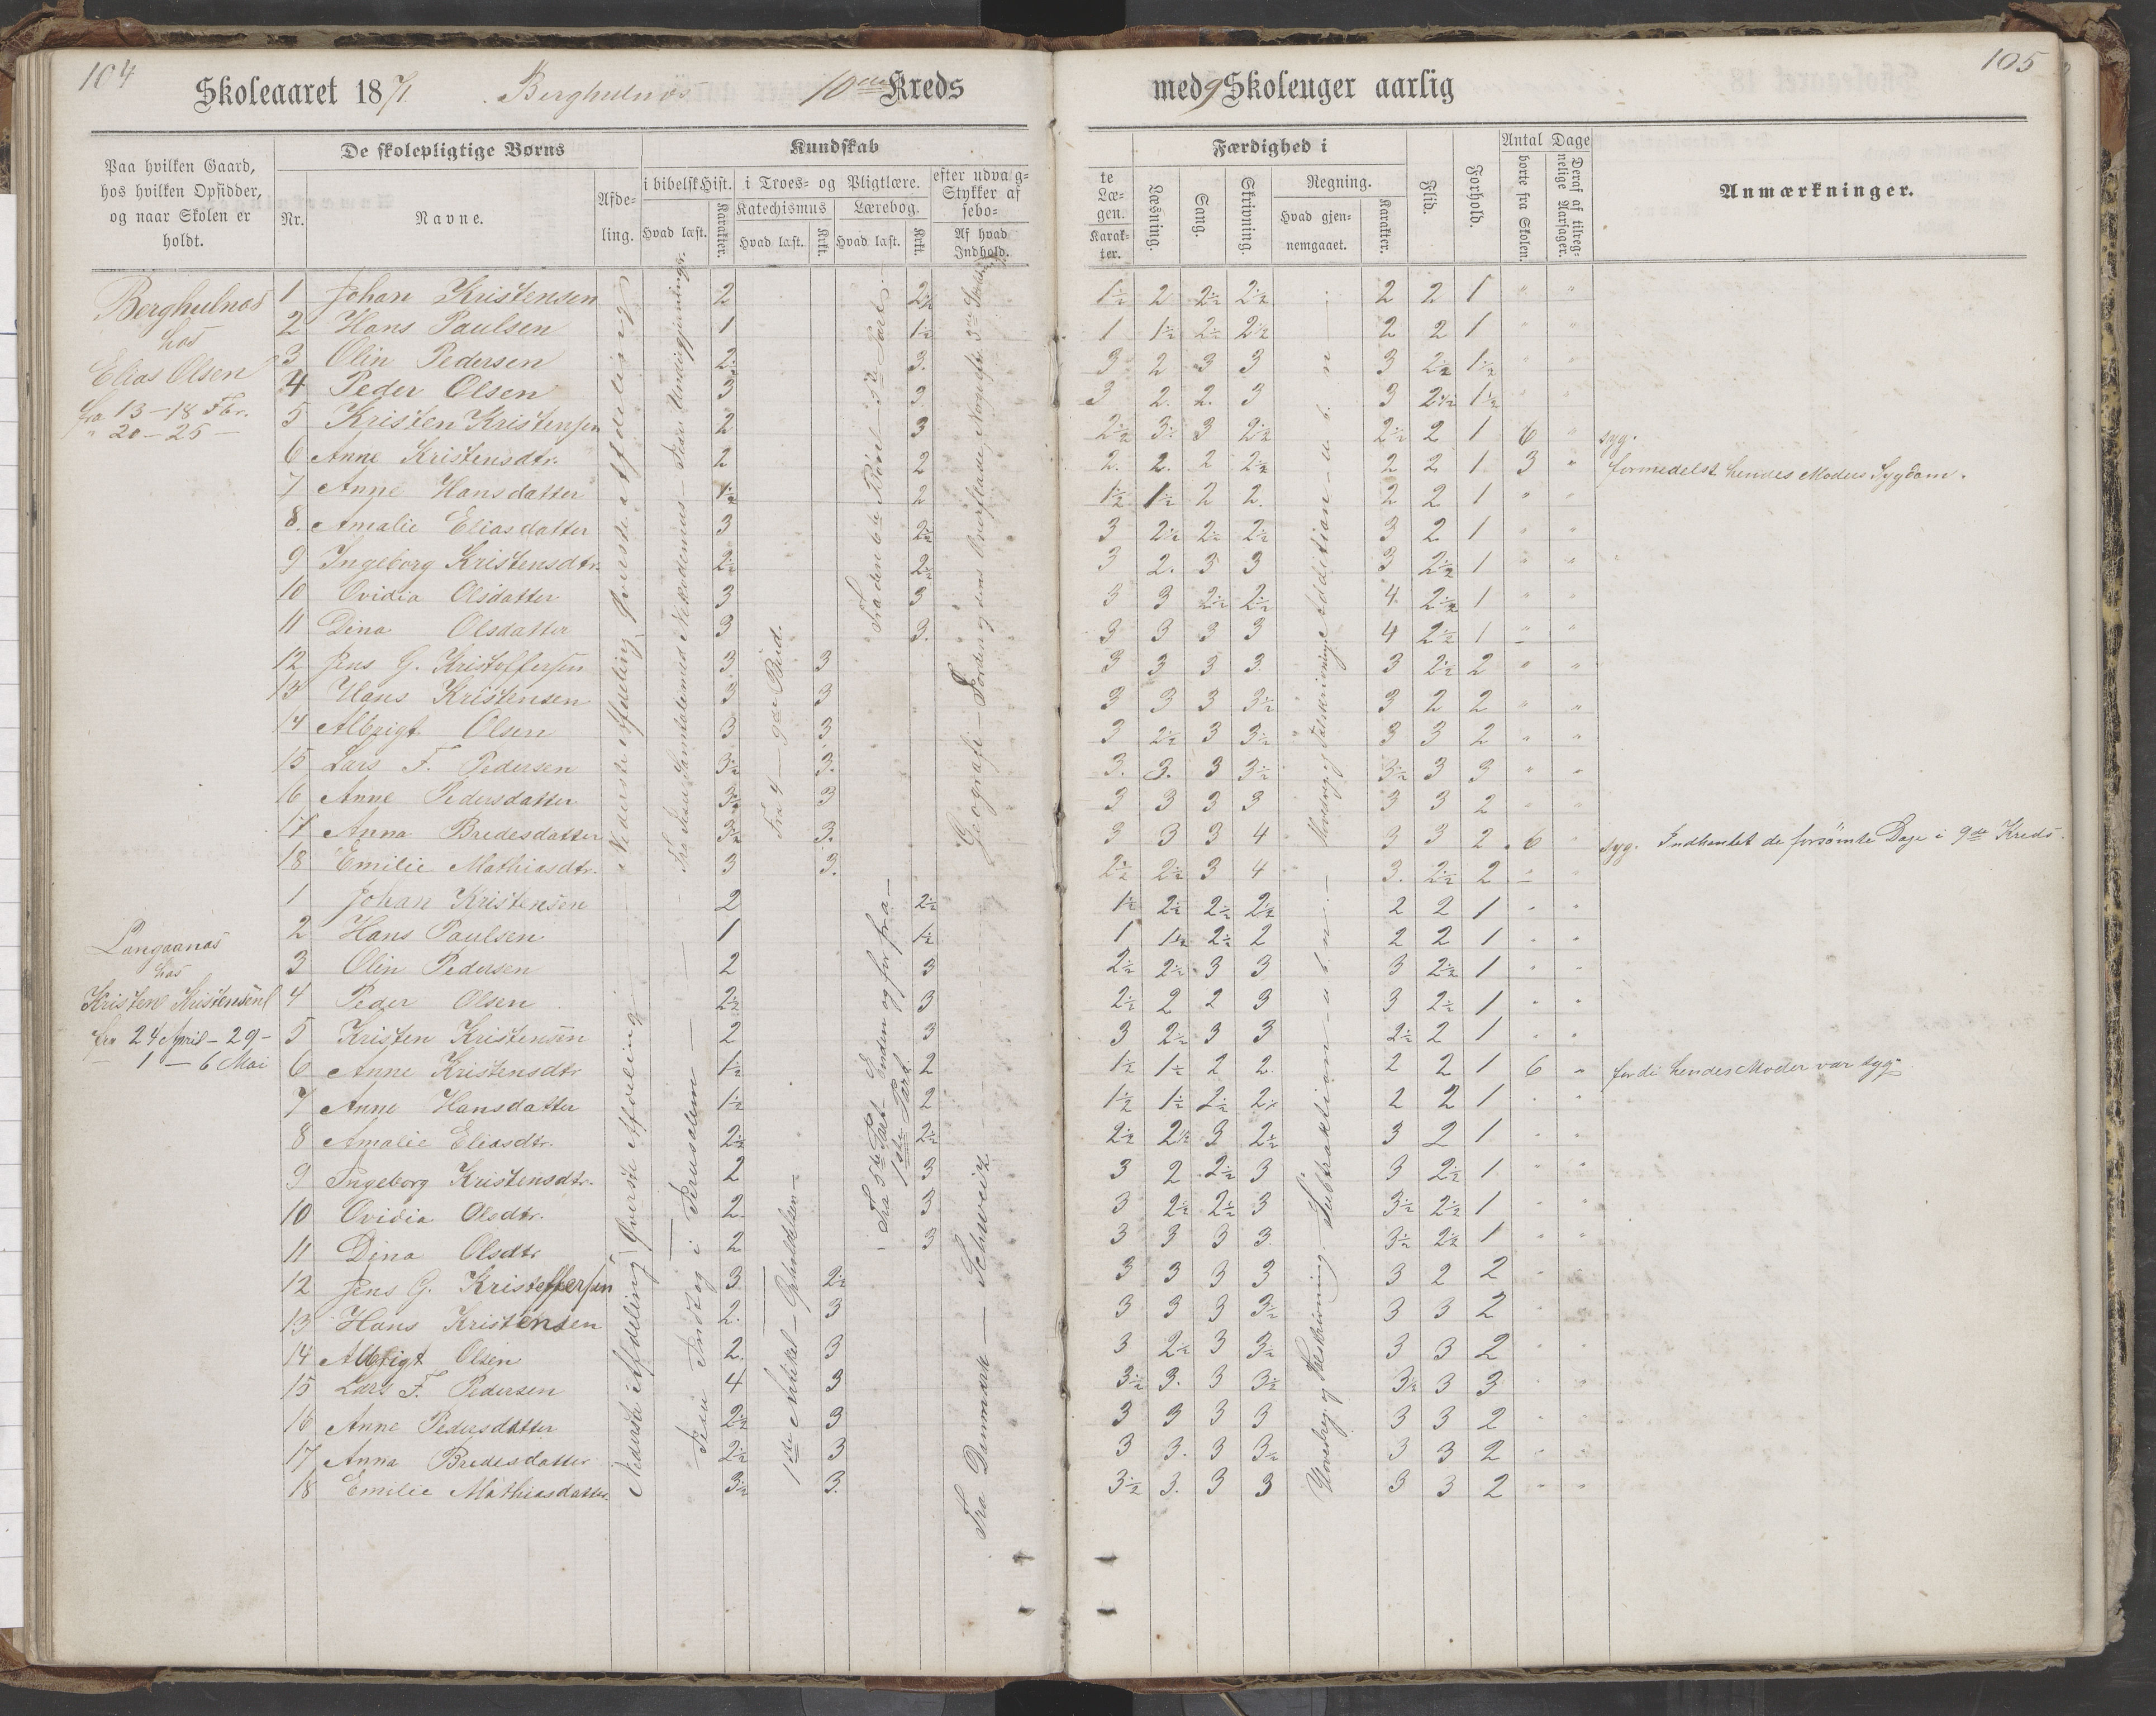 104
Skoleaaret 1871. Berghulnæs 10de Kreds
Paa hvilken Gaard, hos hvilken Opsidder, og naar Skolen er holdt.
De skolepligtige Børns
Nr.
Navne.
Afde-ling.
Kundskab
i bibelsk Hist.
Hvad læst.
Karakter.
i Troes- og Pligtlære.
Katechismus
Hvad læst.
Krkt.
Lærebog.
Hvad læst.
Krkt.
efter udvalg-
Stykker af
sebo-
Af hvad Indhold.
Berghulnæs
hos
Elias Olsen
fra 13-18 Fbr.
" 20-25 -
1 Johan Kristensen 2 2½
2 Hans Paulsen 1 1½
3 Olin Pedersen 2½ 3.
4 Peder Olsen 3 3
5 Kristen Kristensen 2 3
6 Anne Kristensdtr. 2 2
7 Anne Hansdatter 1½ 2
8. Amalie Eliasdatter 3 2½
9 Ingeborg Kristensdtr. 2½ 2½
10 Ovidia Olsdatter 3 3
11 Dina Olsdatter 3 3.
12 Jens G. Kristoffersen 3 3
13 Hans Kristensen 3 3
14 Albrigt Olsen 3 3
15 Lars F. Pedersen 3½ 3.
16 Anne Pedersdatter 3½ 3
17 Anna Bredesdatter 3½ 3.
18 Emilie Mathiasdtr. 3 3.
Nederste Afdeling
Øverste Afdeling
Fra Jesu Samtale med Nikodemus - Jesu Undergjerninger.
Fra 4 - 9de Bud.
Fra den 6te Bøn til 5te Part
Geografi - Jorden og dens Overflade,
Langaanæs
hos
Kristen Kristensen
fra 24 April - 29 -
- 1 - 6 Mai
1 Johan Kristensen 2 2½
2 Hans Paulsen 1 1½
3 Olin Pedersen 2 3
4 Peder Olsen 2½ 3
5 Kristen Kristensen 2 3
6 Anne Kristensdtr 1½ 2
7 Anne Hansdatter 1½ 2
8 Amalie Eliasdtr. 2½ 2½
9 Ingeborg Kristensdtr. 2 3
10 Ovidia Olsdtr. 2. 3
11 Dina Olsdtr 2 3
12 Jens G. Kristoffersen 3 2½
13 Hans Kristensen 2. 3
14 Albrigt Olsen 2. 3
15 Lars F. Pedersen 4 3
16 Anne Pedersdatter 2½ 3
17 Anna Bredesdatter 2½ 3
18 Emilie Mathiasdatter. 3½ 3.
Nederste Afdeling
Øverste Afdeling
Jesu Indtog i Jerusalem -
1ste Artikel -
Fra 5te Part
1ste Part.
Fra Danmark - Schweiz
105
med 9 Skoleuger aarlig
te
Læ-
gen.
Karak-
ter.
Færdighed i
Læsning.
Sang.
Skrivning.
Regning.
Hvad gjen-
nemgaaet.
Karakter.
Flid.
Forhold.
Antal Dage
borte fra Skolen.
Deraf af tilreg-
nelige Aarsager.
Anmærkninger.
1½ 2 2½ 2½ 2 2 1 " "
1 1½ 2½ 2½ 2 2 1 " "
3 2 3 3 3 2½ 1½ " "
3 2. 2. 3 3 2½ 1½ " "
2½ 3½ 3 2½ 2½ 2 1 6 " syg.
2. 2. 2 2½ 2 2 1 3 " formedelst hendes Moders Sygdom.
1½ 1½ 2 2. 2 2 1 " "
3 2½ 2½ 2½ 3 2 1 " "
3 2. 3 3 3 2½ 1 " "
3 3 2½ 2½ 4. 2½ 1 " "
3 3 3 3 4 2½ 1 " "
3 3 3 3 3 2½ 2 " "
3 3 3 3½ 3 2 2 " "
3 2½ 3 3½ 3 3 2 " "
3. 3. 3 3½ 3½ 3 3 " "
3 3 3 3 3 3 2 " "
3 3 3 4 3 3 2 6 " syg. Indhentet de forsømte Dage i 9de Kreds.
2½ 2½ 3 4 3. 2½ 2 " "
Addition - u. b. n.
1½ 2½ 2½ 2½ 2 2 1 " "
1 1½ 2½ 2 2 2 1 " "
2½ 2½ 3 3 3 2½ 1 " "
2½ 2 2 3 3 2½ 1 " "
3 2½ 3 3 2½ 2 1 " "
1½ 1½ 2 2. 2 2 1 6 " fordi hendes Moder var syg
1½ 1½ 2½ 2½ 2 2 1 " "
2½ 2½ 3 2½ 3 2 1 " "
3 2 2½ 3 3 2½ 1 " "
3 2½ 2½ 3 3½ 2½ 1 " "
3 3 3 3. 3½ 2½ 1 " "
3 3 3 3 3 2 2 " "
3 3 3 3½ 3 3 2 " "
3 2½ 3 3½ 3 3 2 " "
3½ 3. 3 3½ 3½ 3 3 " "
3 3 3 3 3 3 2 " "
3 3. 3 3½ 3 3 2 " "
3½ 3. 3 3 3 3 2 " "
Subtraktion - u. b. n. -